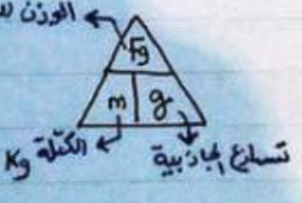 الوزن
Fg
m g
الكتلة Kg
تسارع الجاذبية